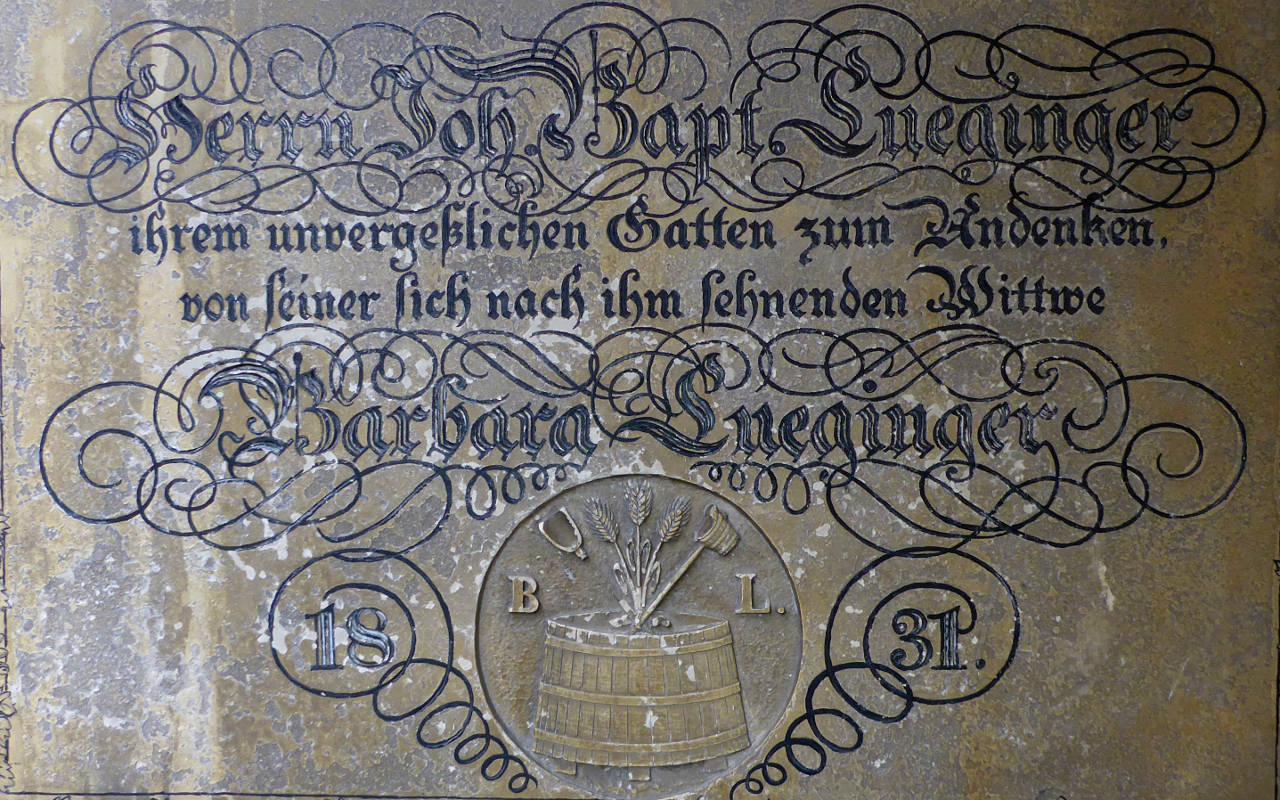 Herrn Joh. Bapt. Lueginger
ihrem unvergeßlichen Gatten zum Andenken,
von seiner sich nach ihm sehnenden Wittwe
Barbara Lueginger
B L.
18 31.